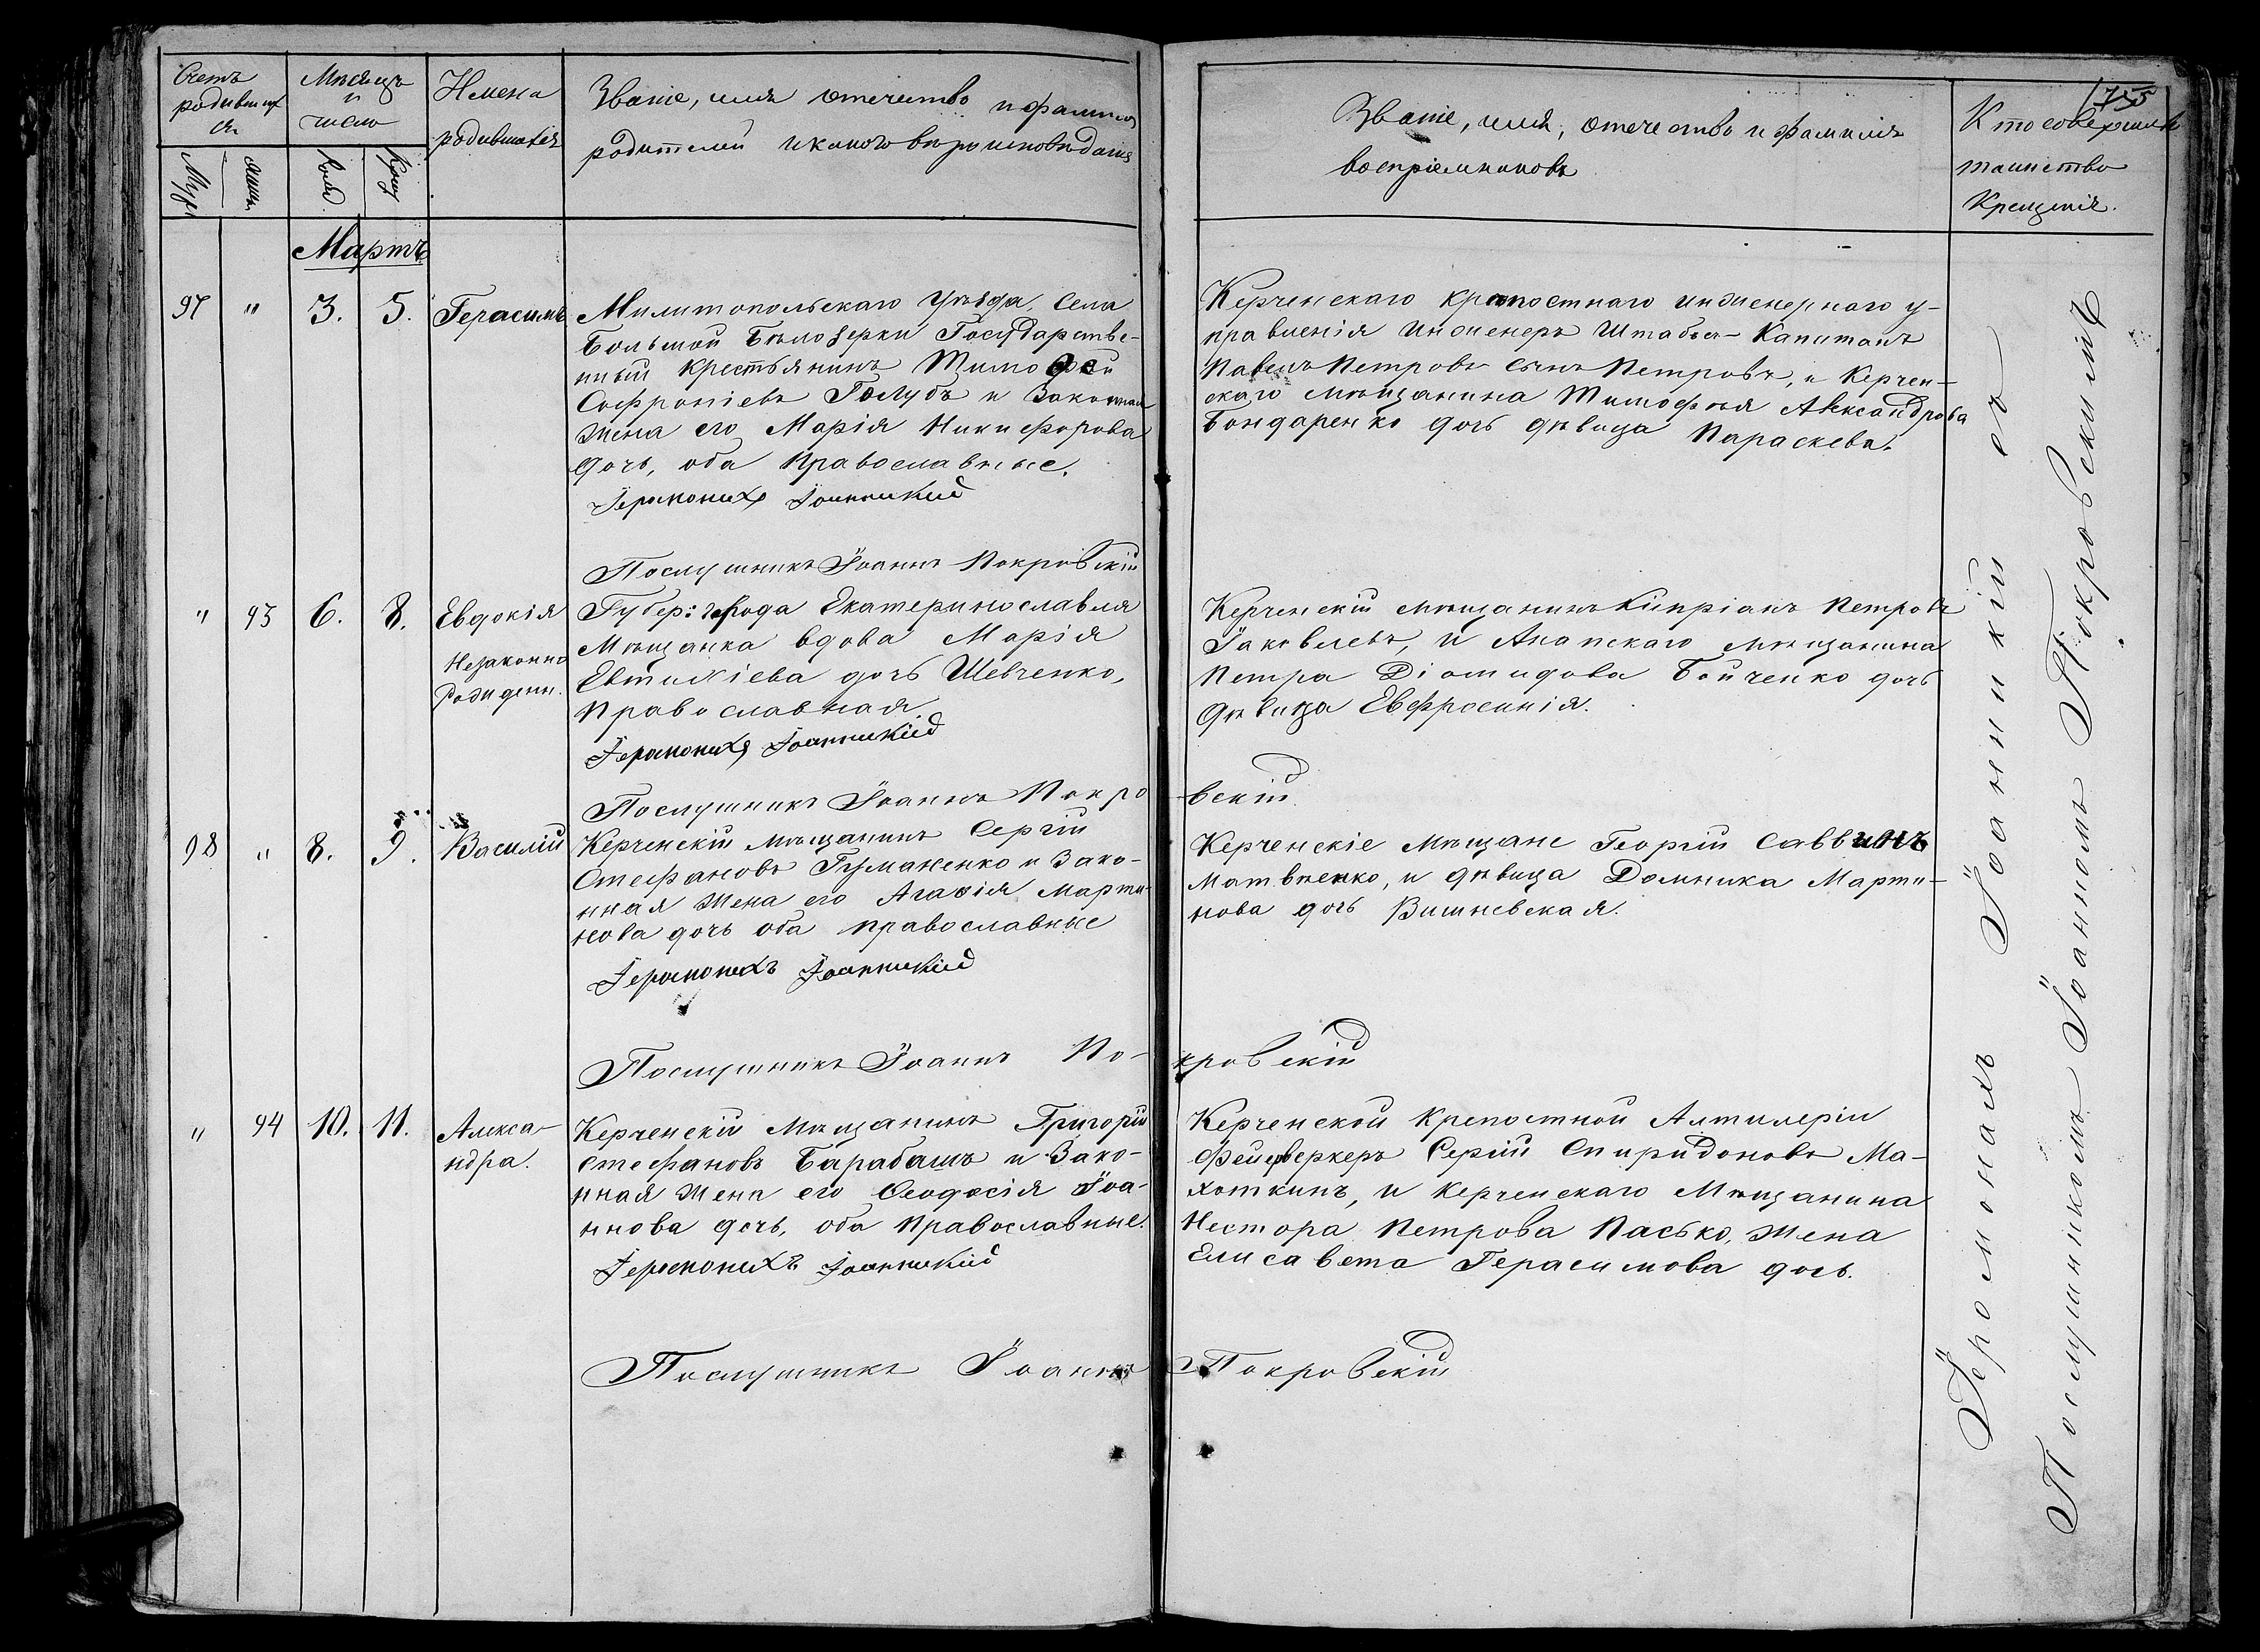 Счетъ родившихся
Мѣсяцъ и число
Имена родившихся
Званіе, имя отечество и фамилія
родителей и какого вѣроисповѣданія
Муж
Жен
Рожд
Крещ
755
Званіе, имя, отечество и фамилія
воспріемниковъ
Кто совершилъ
таинство
Крещенія.
Мартъ
97 " 3. 5. Герасимъ
Милитопольскаго уѣзда, Села
Большой Бѣлозерки Государстве-
нный крестьянинъ Тимофей
Софроніевъ Голубъ и Законная
жена его Марія Никифорова
дочь, оба Православные.
Іеромонахъ Іоанникій
Послушникъ Іоаннъ Покровскій
Керченскаго крепостнаго инженернаго у-
правленія Инженеръ Штабсъ-Капитанъ
Павелъ Петровъ сынъ Петровъ, и Керчен-
скаго мѣщанина Тимофѣя Александрова
Бондаренко дочь дѣвица Параскева.
" 93 6. 8. Евдокія
Незаконно
Рожденн.
Губер: города Екатеринославля
Мѣщанка вдова Марія
Евтихіева дочь Шевченко,
Православная
Іеромонахъ Іоанникій
Послушникъ Іоаннъ Покро
вскій
Керченскій мѣщанинъ Кипріанъ Петровъ
Іаковлевъ, и Анапскаго мѣщанина
Петра Діомидова Бойченко дочь
дѣвица Евфросинія.
98 " 8. 9. Василій
Керченскій мѣщанинъ Сергій
Стефановъ Гуманенко и Зако-
нная жена его Агафія Марти-
нова дочь оба православные
Іеромонахъ Іоанникій
Послушникъ Іоаннъ По-
кровскій
Керченскіе мѣщане Георгій Саввинъ
Матвѣенко, и дѣвица Домника Марти-
нова дочь Вишневская.
" 94 10. 11. Алекса-
ндра.
Керченскій Мѣщанинъ Григорій
Стефановъ Барабашъ и Зако-
нная жена его Ѳеодосія Іоа-
ннова дочь, оба Православные.
Іеромонахъ Іоанникій
Послушникъ Іоаннъ
Покровскій
Керченской Крепостной Алтилеріи
Фейерверкеръ Сергій Спиридоновъ Ма-
хоткинъ, и Керченскаго Мѣщанина
Нестора Петрова Пасько, жена
Елисавета Герасимова дочь.
Іеромонахъ Іоанникій съ
Послушникомъ Іоанномъ Покровскимъ